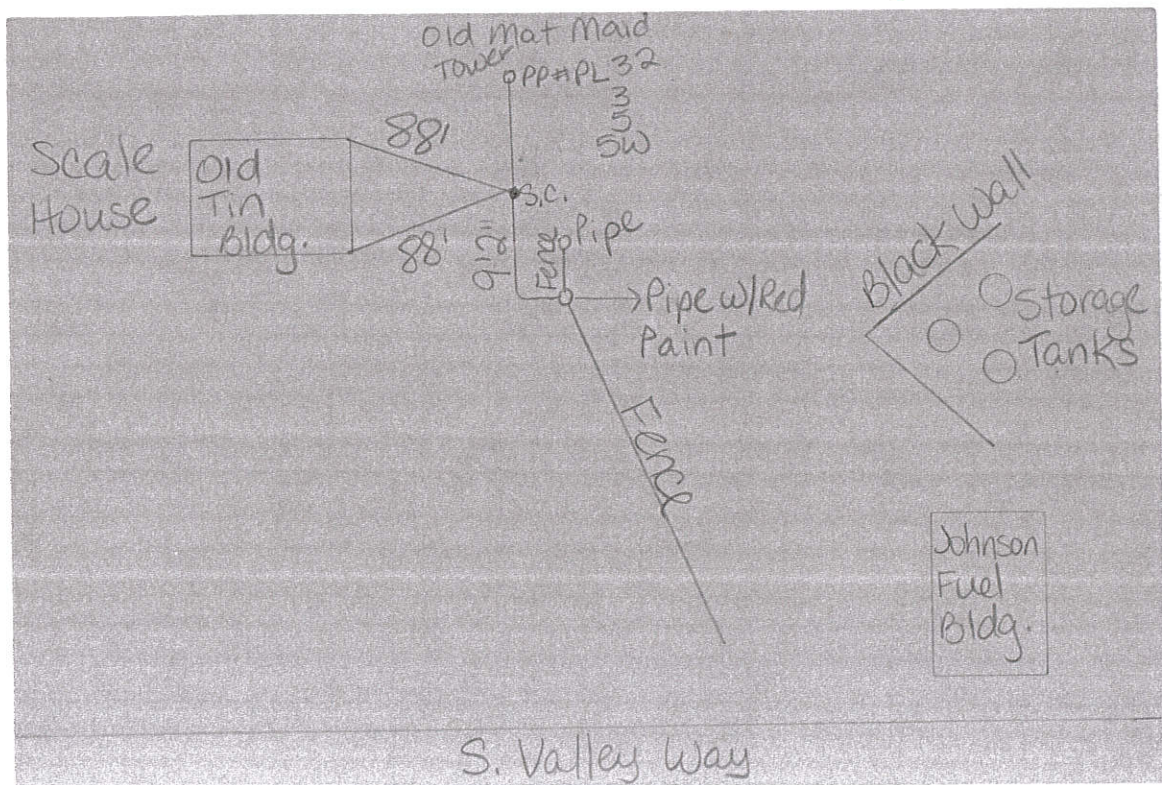 Old Mat Maid
Tower
PP#PL32
3
5
5W
Scale
House
Old
Tin
Bldg.
88'
88'
S.C.
9'2"
Fence
Pipe
Pipe w/Red
Paint
Black Wall
Storage
Tanks
Fence
Johnson
Fuel
Bldg.
S. Valley Way